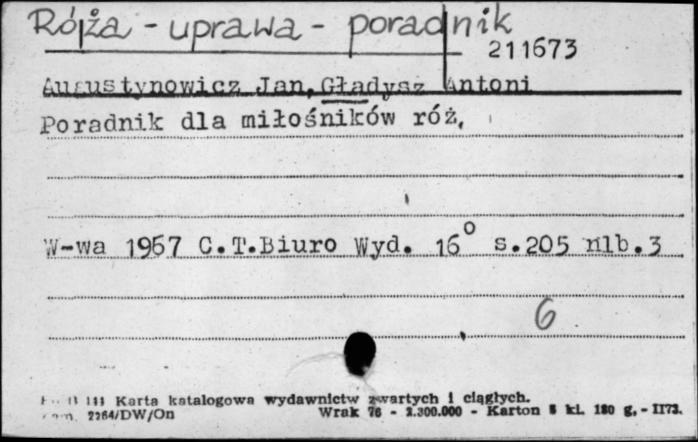 Róża - uprawa - poradnik
211673
Augustynowicz Jan, Gładysz Antoni
Poradnik dla miłośników róż,
W-wa 1967 C.T.Biuro Wyd. 16° s.205 nlb.3
6
Karta katalogowa wydawnictw zwartych i ciągłych.
2264/DW/On Wrak 76 - 2.300.000 - Karton kl. 180 g. - II73.